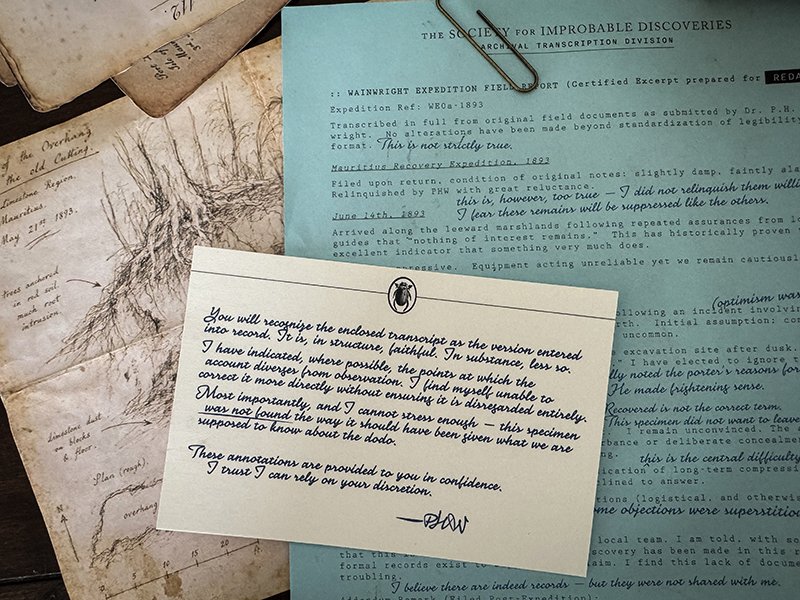 112.
of the Overhang
the old Cutting.
Limestone Region.
Mauritius
May 21st 1893.
trees anchored
in red soil
much root
intrusion.
limestone dust
on blocks
& floor.
Plan (rough).
overhang
N
5
10
15
20
THE SOCIETY FOR IMPROBABLE DISCOVERIES
ARCHIVAL TRANSCRIPTION DIVISION
:: WAINWRIGHT EXPEDITION FIELD REPORT (Certified Excerpt prepared for REDA
Expedition Ref: WE0a-1893
Transcribed in full from original field documents as submitted by Dr. P.H.
wright. No alterations have been made beyond standardization of legibility
format. This is not strictly true.
Mauritius Recovery Expedition, 1893
Filed upon return, condition of original notes: slightly damp, faintly ala
Relinquished by PHW with great reluctance.
this is, however, too true — I did not relinquish them willi
I fear these remains will be suppressed like the others.
June 14th, 1893
Arrived along the leeward marshlands following repeated assurances from lo
guides that "nothing of interest remains." This has historically proven
excellent indicator that something very much does.
pressive. Equipment acting unreliable yet we remain cautiously
(optimism was
ollowing an incident involving
th. Initial assumption: con
uncommon.
excavation site after dusk.
" I have elected to ignore t
lly noted the porter's reasons for
He made frightening sense.
Recovered is not the correct term.
This specimen did not want to leave
I remain unconvinced. The a
rbance or deliberate concealme
this is the central difficulty
ication of long-term compressi
lined to answer.
tions (logistical, and otherwis
me objections were superstitiou
local team. I am told, with so
that this
discovery has been made in this r
formal records exist to
aim. I find this lack of docume
troubling.
I believe there are indeed records — but they were not shared with me.
Addendum Remark (Filed Post-Expedition):
You will recognize the enclosed transcript as the version entered
into record. It is, in structure, faithful. In substance, less so.
I have indicated, where possible, the points at which the
account diverges from observation. I find myself unable to
correct it more directly without ensuring it is disregarded entirely.
Most importantly, and I cannot stress enough — this specimen
was not found the way it should have been given what we are
supposed to know about the dodo.
These annotations are provided to you in confidence.
I trust I can rely on your discretion.
—PHW